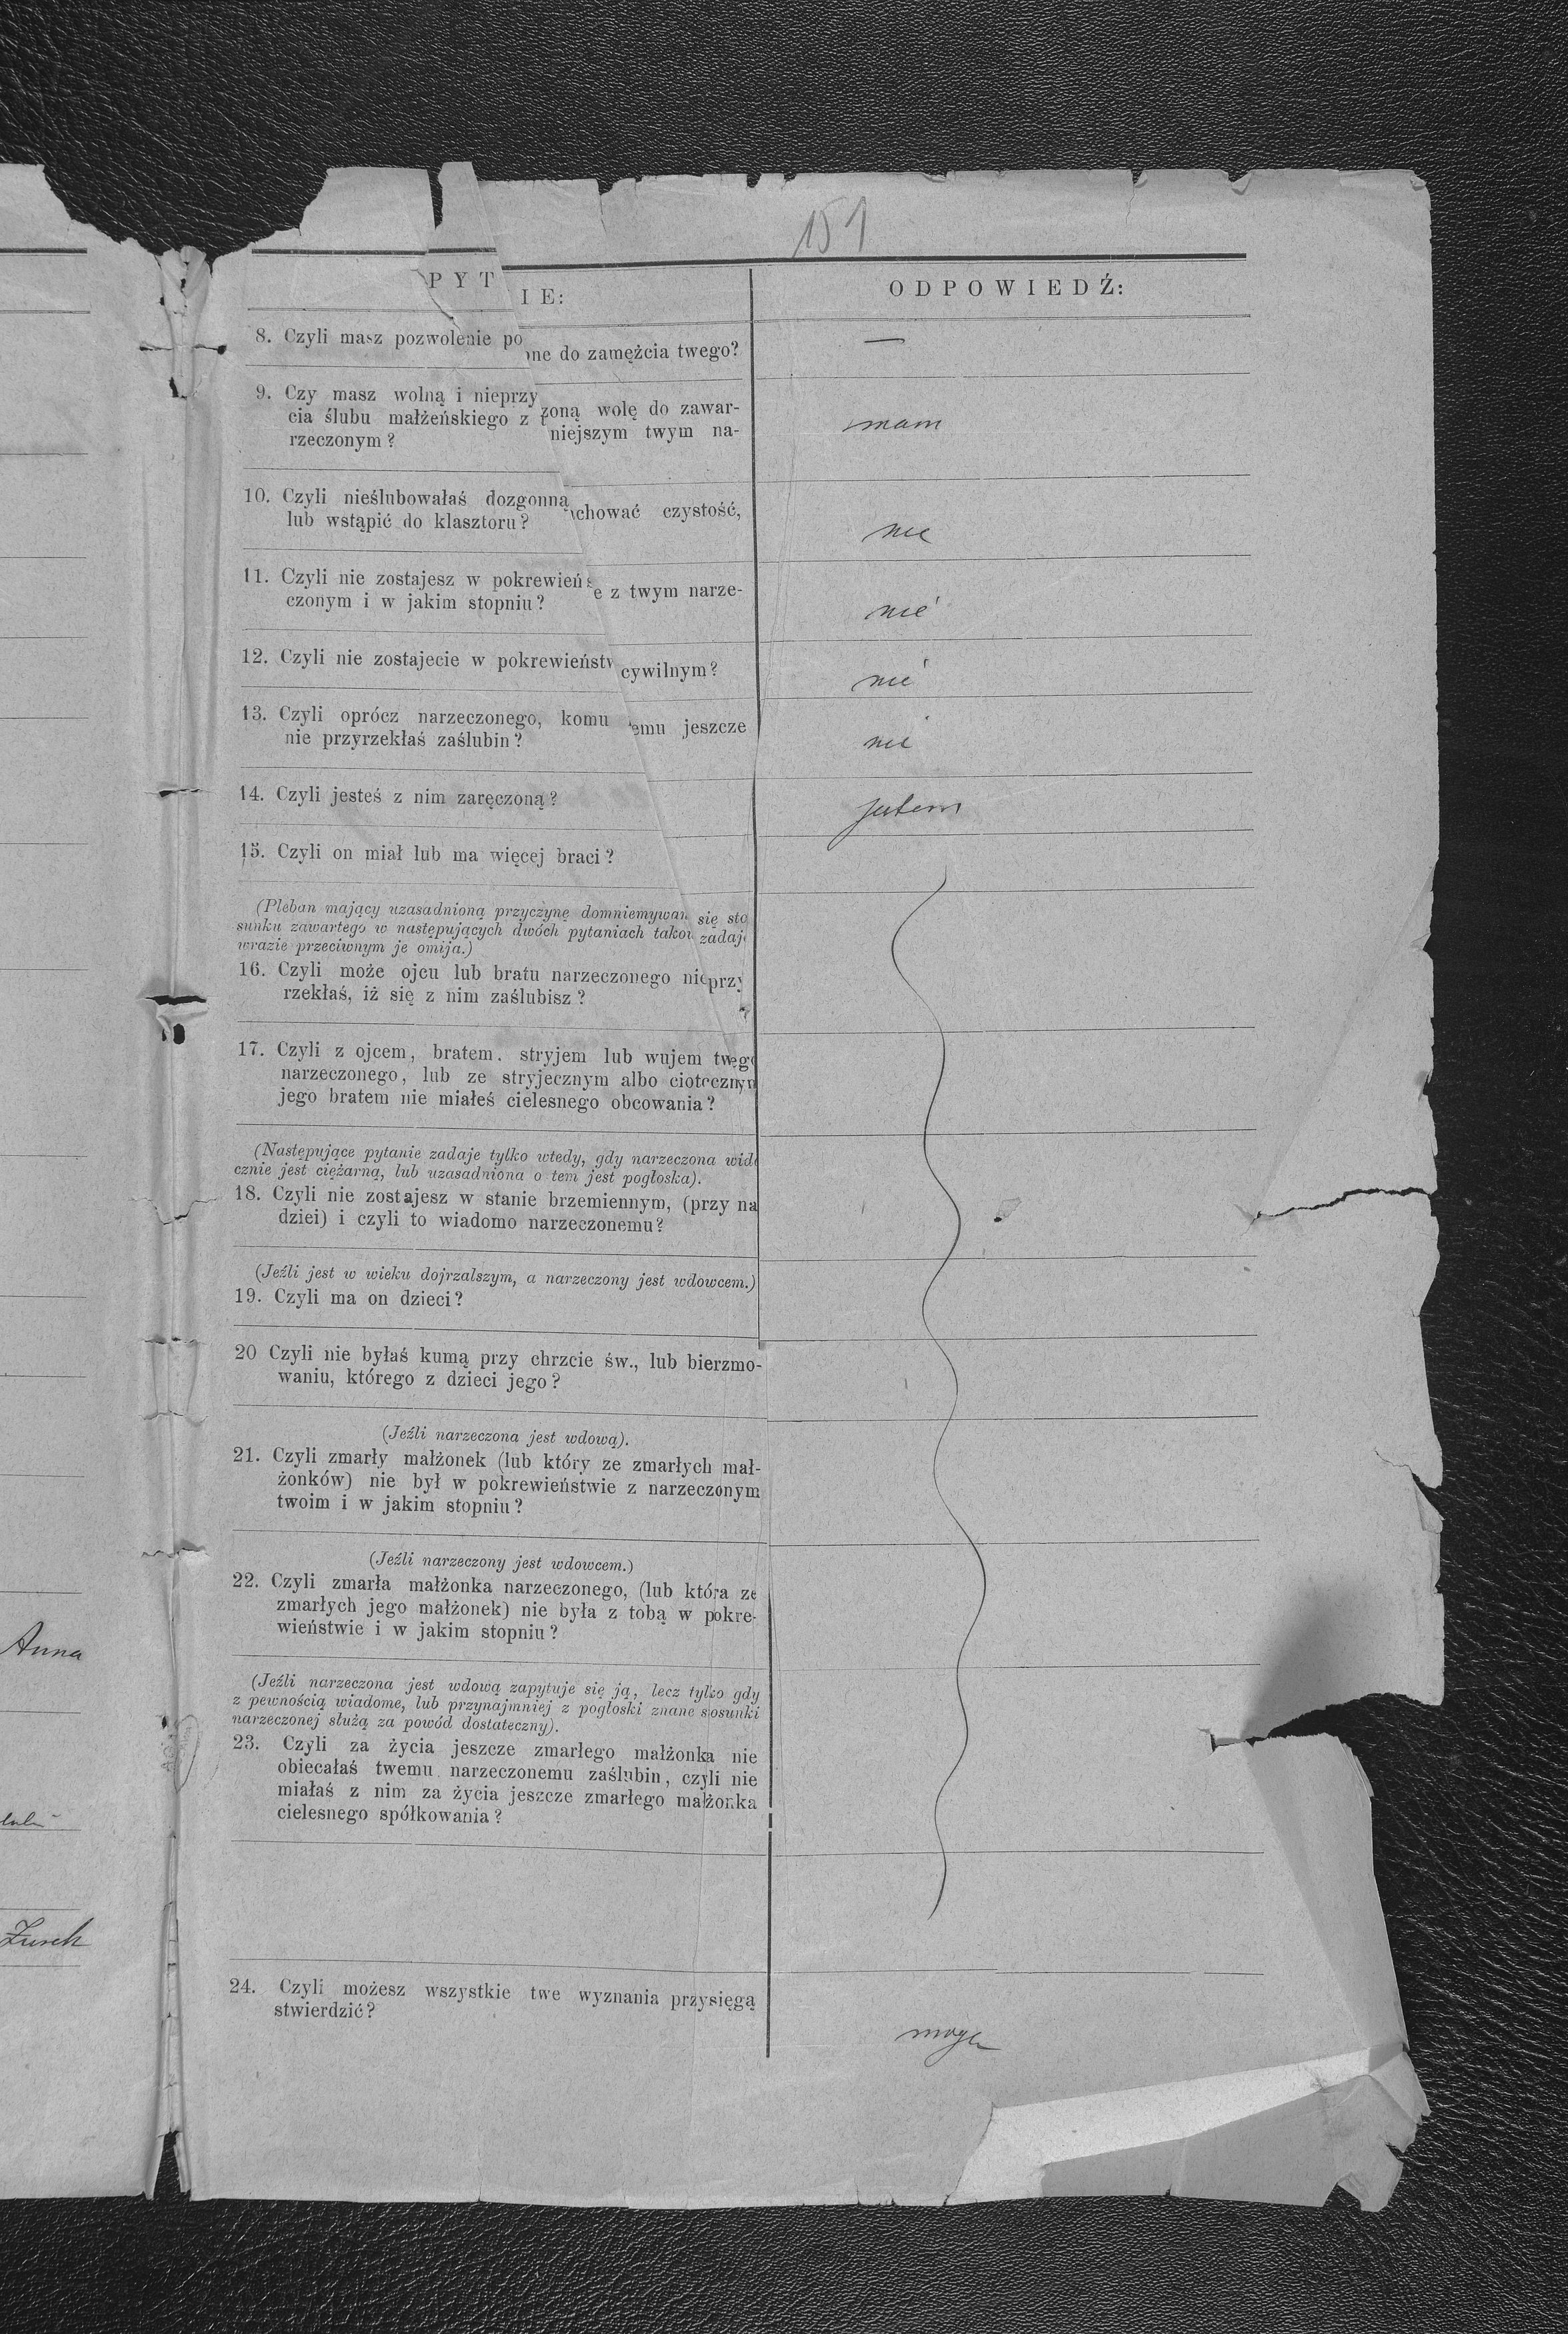 151
PYT IE: ODPOWIEDŹ:
8. Czyli masz pozwolenie po ne do zamężcia twego? —
9. Czy masz wolną i nieprzy zoną wolę do zawar-
cia ślubu małżeńskiego z t niejszym twym na-
rzeczonym?
mam
10. Czyli nieślubowałaś dozgonną chować czystość,
lub wstąpić do klasztoru?
nie
11. Czyli nie zostajesz w pokrewieńs e z twym narze-
czonym i w jakim stopniu?
nie
12. Czyli nie zostajecie w pokrewieństw cywilnym?
nie
13. Czyli oprócz narzeczonego, komu emu jeszcze
nie przyrzekłaś zaślubin?
nie
14. Czyli jesteś z nim zaręczoną?
jestem
15. Czyli on miał lub ma więcej braci?
(Pleban mający uzasadnioną przyczynę domniemywan się sto
sunku zawartego w następujących dwóch pytaniach takow zadaje
wrazie przeciwnym je omija.)
16. Czyli może ojcu lub bratu narzeczonego nieprzy
rzekłaś, iż się z nim zaślubisz?
17. Czyli z ojcem, bratem, stryjem lub wujem twego
narzeczonego, lub ze stryjecznym albo ciotecznym
jego bratem nie miałeś cielesnego obcowania?
(Następujące pytanie zadaje tylko wtedy, gdy narzeczona wido
cznie jest ciężarną, lub uzasadniona o tem jest pogłoska).
18. Czyli nie zostajesz w stanie brzemiennym, (przy na
dziei) i czyli to wiadomo narzeczonemu?
(Jeźli jest w wieku dojrzalszym, a narzeczony jest wdowcem.)
19. Czyli ma on dzieci?
20 Czyli nie byłaś kumą przy chrzcie św., lub bierzmo-
waniu, którego z dzieci jego?
(Jeźli narzeczona jest wdową).
21. Czyli zmarły małżonek (lub który ze zmarłych mał-
żonków) nie był w pokrewieństwie z narzeczonym
twoim i w jakim stopniu?
(Jeźli narzeczony jest wdowcem.)
22. Czyli zmarła małżonka narzeczonego, (lub która ze
zmarłych jego małżonek) nie była z tobą w pokre-
wieństwie i w jakim stopniu?
Anna
(Jeźli narzeczona jest wdową zapytuje się ją, lecz tylko gdy
z pewnością wiadome, lub przynajmniej z pogłoski znane stosunki
narzeczonej służą za powód dostateczny).
23. Czyli za życia jeszcze zmarłego małżonka nie
obiecałaś twemu narzeczonemu zaślubin, czyli nie
miałaś z nim za życia jeszcze zmarłego małżonka
cielesnego spółkowania?
Żurek
24. Czyli możesz wszystkie twe wyznania przysięgą
stwierdzić?
mogę